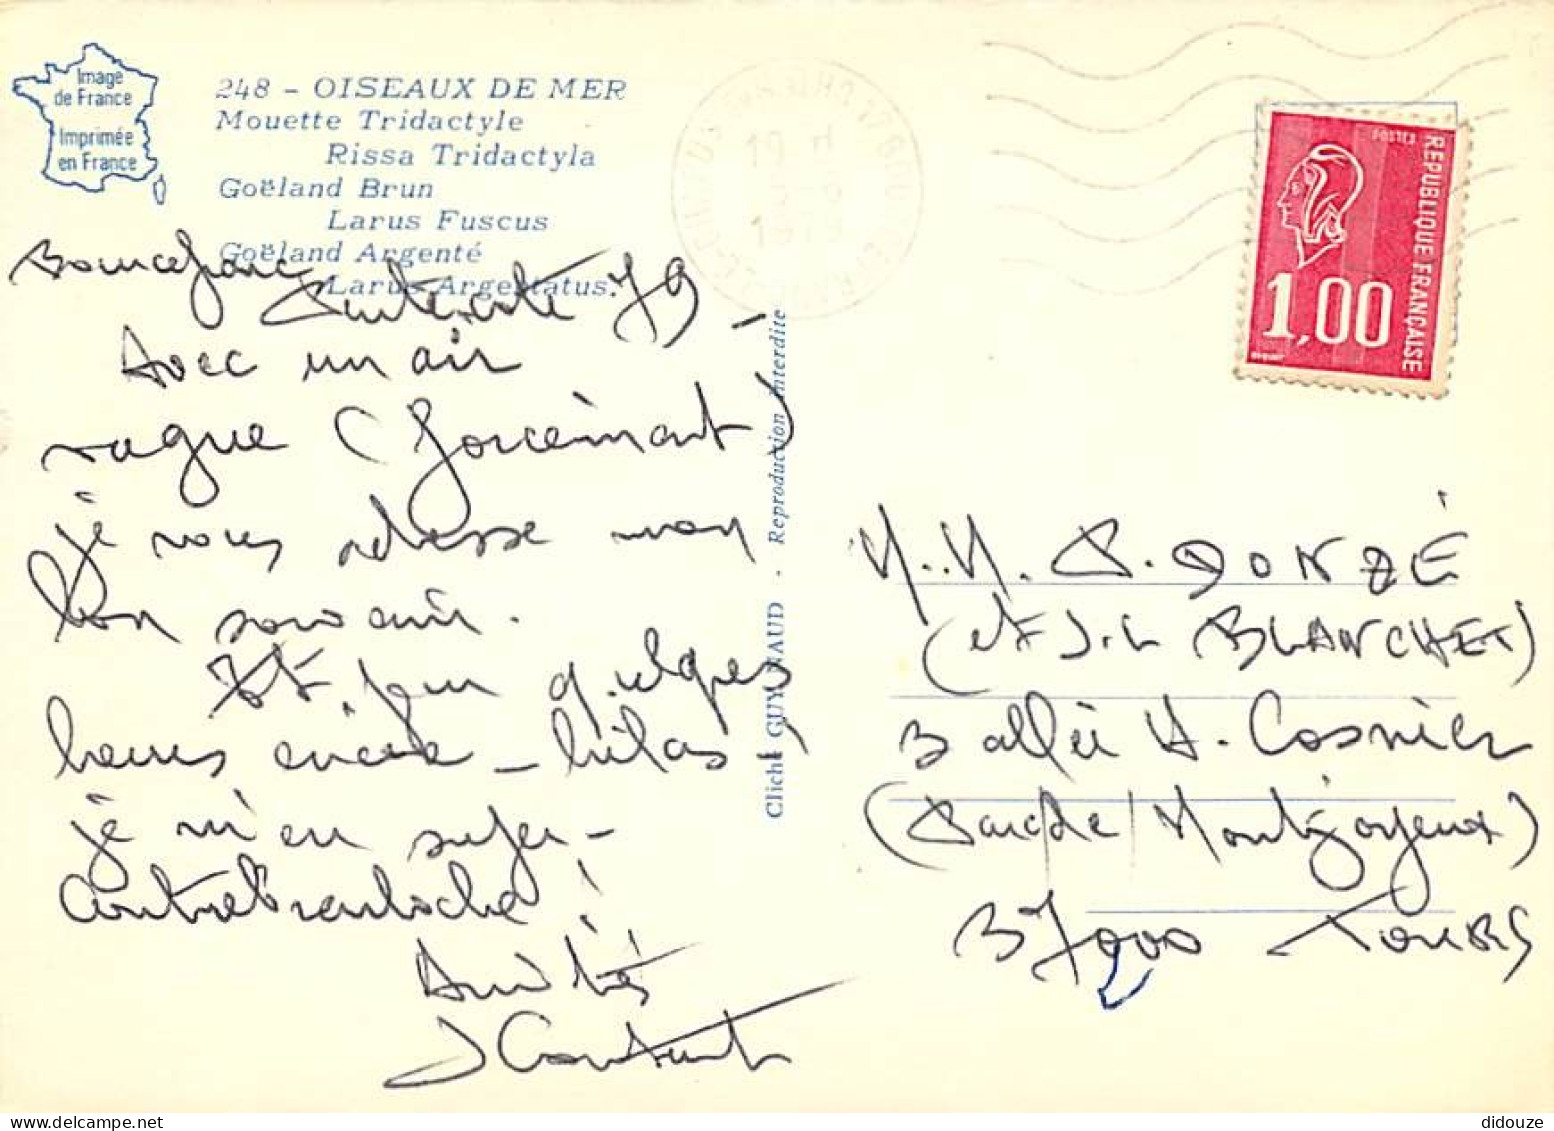 Image
de France
Imprimée
en France
248 - OISEAUX DE MER
Mouette Tridactyle
Rissa Tridactyla
Goëland Brun
Larus Fuscus
Goëland Argenté
Larus Argentatus.
Bourcefranc
79
Avec un air
vague (forcément)
je vous adresse mon
bon souvenir.
pour quelques
heures encore - hélas !
je m'en
Amitiés
Cliché GUYNAUD - Reproduction interdite
1979
POSTES
REPUBLIQUE FRANÇAISE
1,00
M.M. P. DONZÉ
(et J.L BLANCHET)
3 allée H. Cosnier
(Parc de Montjoyeux)
37000 TOURS
didouze